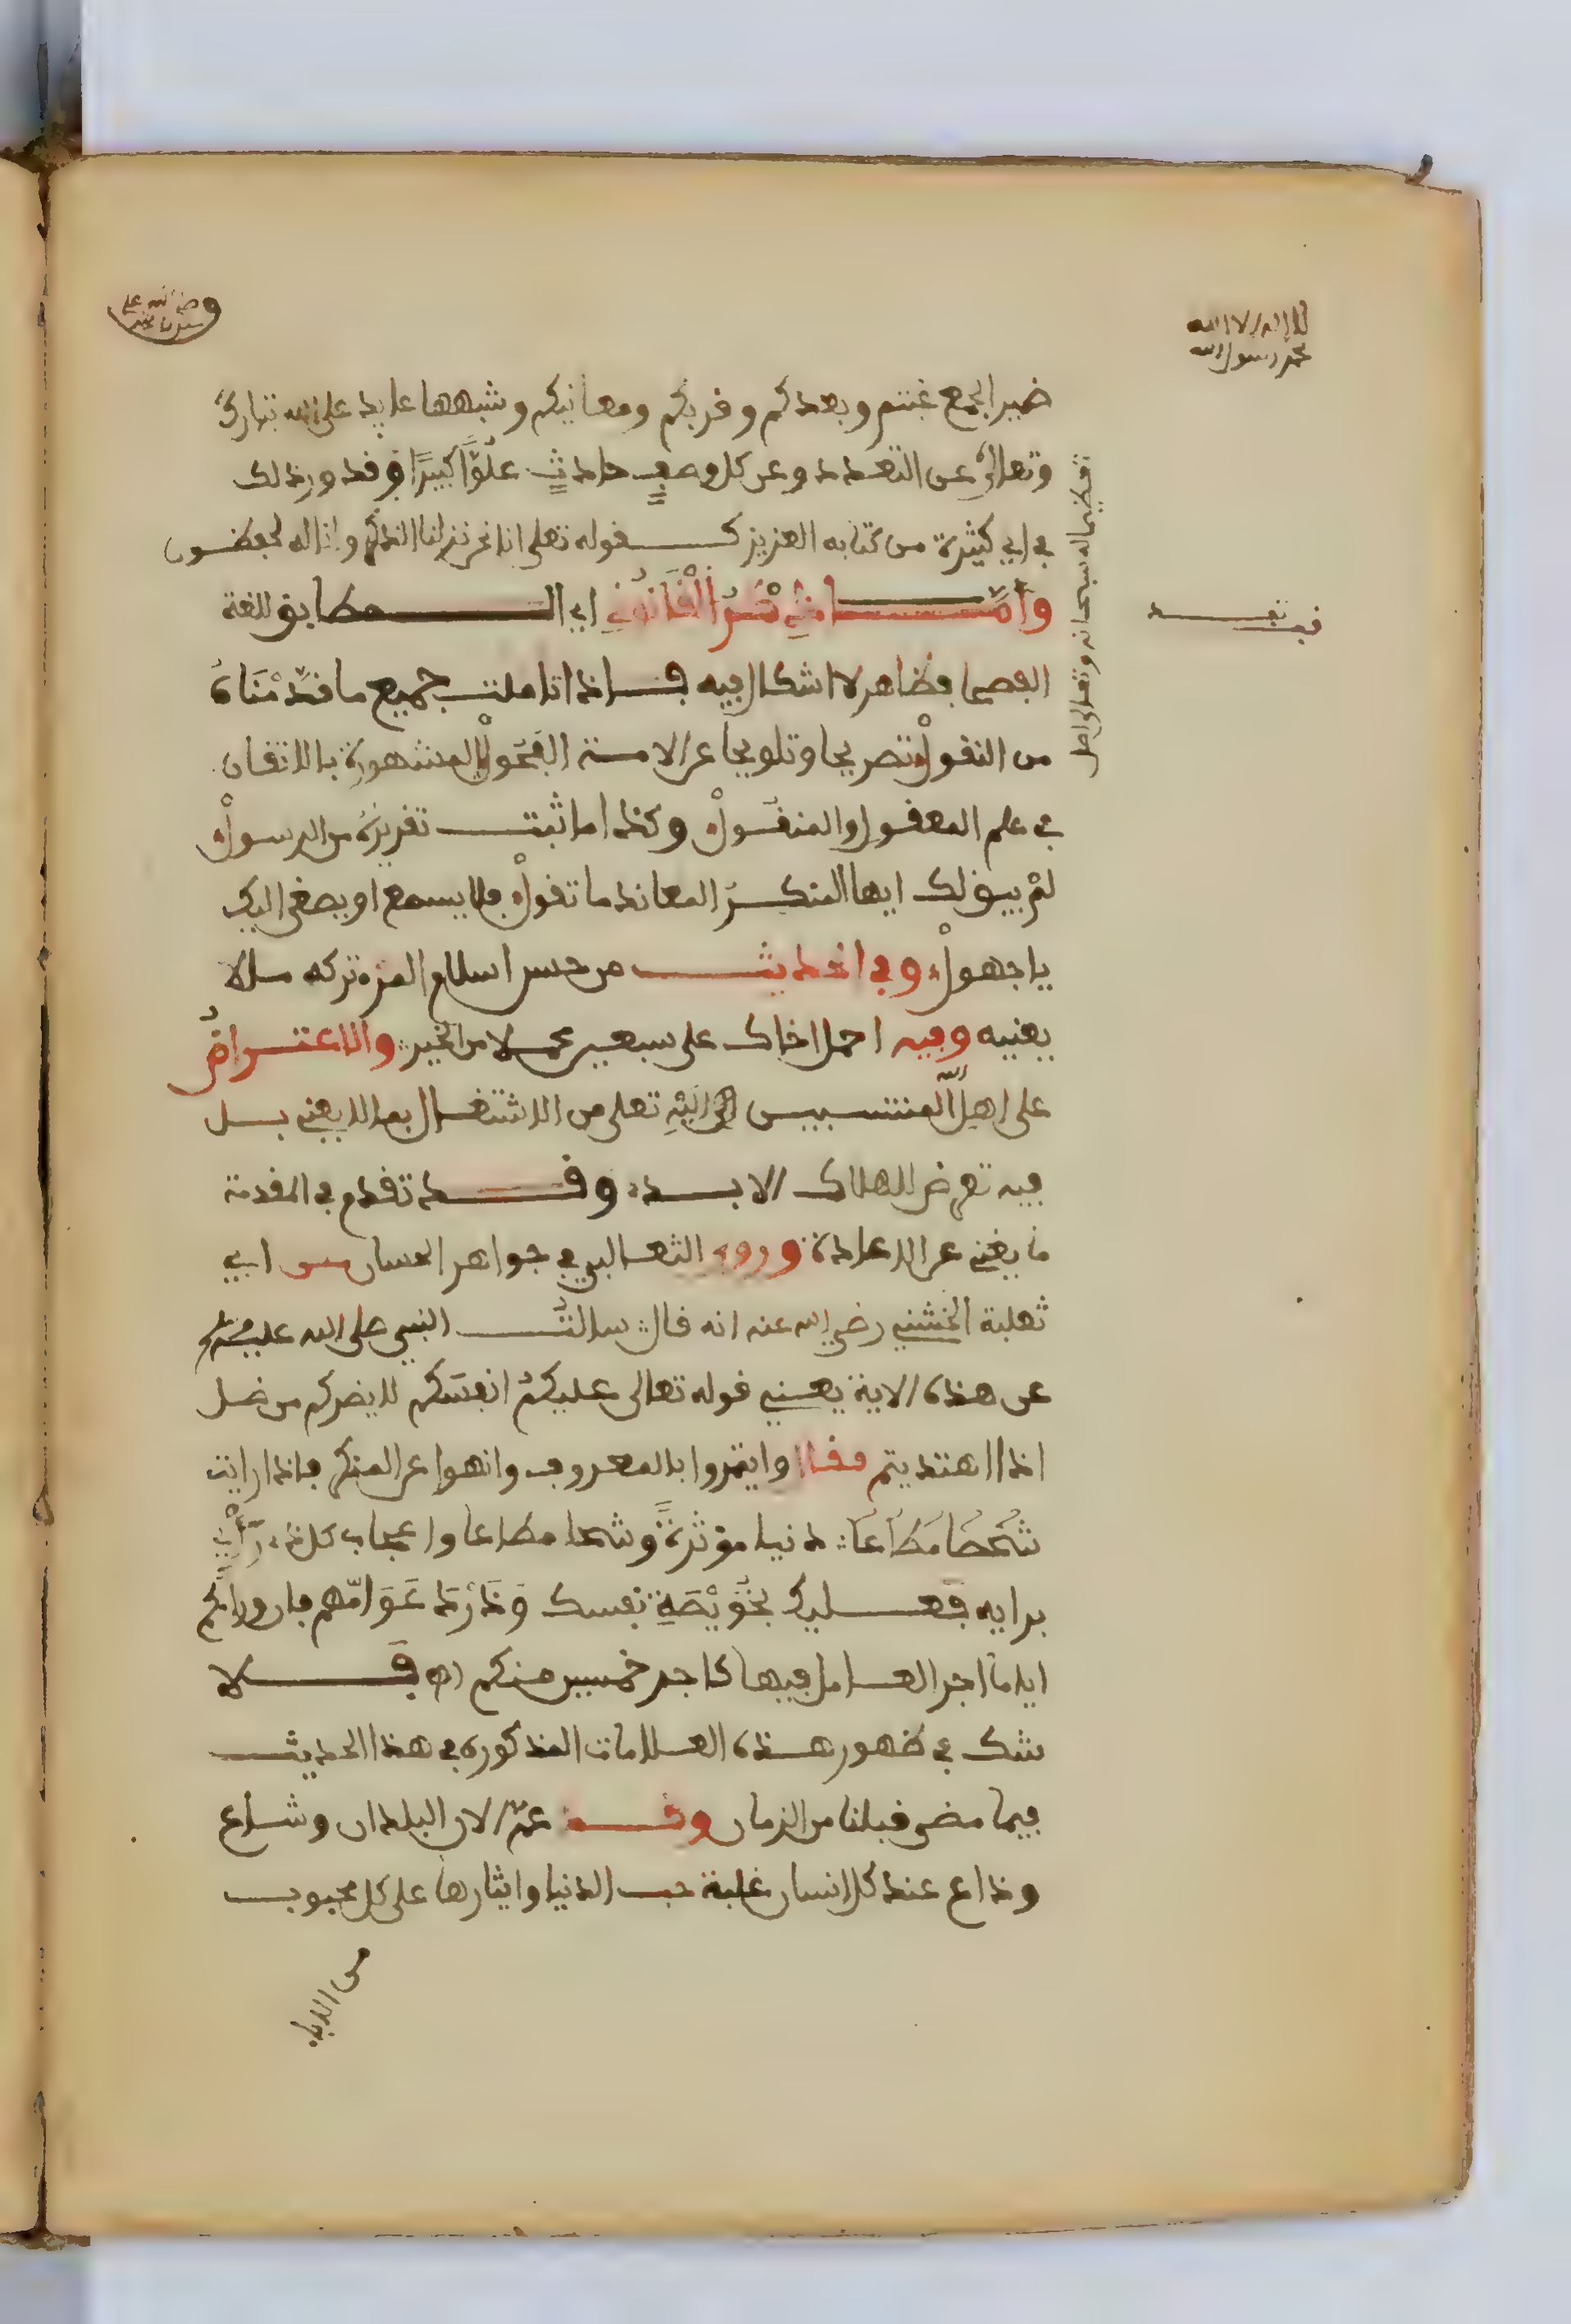 لا إله إلا الله
محمد رسول الله
وصلى الله على
سيدنا محمد
ضمير الجمع غبتم وبعدكم وقربكم ومعانيكم وشبهها عايد على الله تبارك
وتعالى عن التعدد وعن كل وصف حادث علوا كبيرا وقد ورد ذلك
في اي كثيرة من كتابه العزيز كقوله تعلى انا نحن نزلنا الذكر وانا له لحفظون
تعظيما له سبحانه وتعالى
وأما اي المطابق للغة
الفصحا فظاهر لا اشكال فيه فاذا تاملت جميع ما قدمناه
من النقول تصريحا وتلويحا عن الايمة الفحول المشهورة بالاتقان
في علم المعقول والمنقول وكذا ما ثبت تقريره من الرسول
لم يبق لك ايها المنكر المعاند ما تقول فلا يسمع او يصغى اليك
يا جهول وفي الحديث من حسن اسلام المرء تركه ما لا
يعنيه وفيه احمل اخاك على سبعين محملا من الخير والاعتراض
على اهل الله المنتسبين اليه تعلى من الاشتغال بما لا يعني بل
فيه تعرض للهلاك الابد وقد تقدم في المقدمة
ما يغني عن الاعادة وروى الثعالبي في جواهر الحسان عن ابي
ثعلبة الخشني رضي الله عنه انه قال سالت النبي صلى الله عليه وسلم
عن هذه الاية يعني قوله تعالى عليكم انفسكم لا يضركم من ضل
اذا اهتديتم فقال وايتمروا بالمعروف وانهوا عن المنكر فاذا رايت
شحا مطاعا دنيا مؤثرة وشحا مطاعا واعجاب كل ذي رأي
برايه فعليك بخويصة نفسك وذر عوامهم فان وراءكم
اياما اجر العامل فيها كاجر خمسين منكم اه فلا
شك في ظهور هذه العلامات المذكورة في هذا الحديث
فيما مضى قبلنا من الزمان وقد عم الان البلدان وشاع
وذاع عند كل انسان غلبة حب الدنيا وايثارها على كل محبوب
من